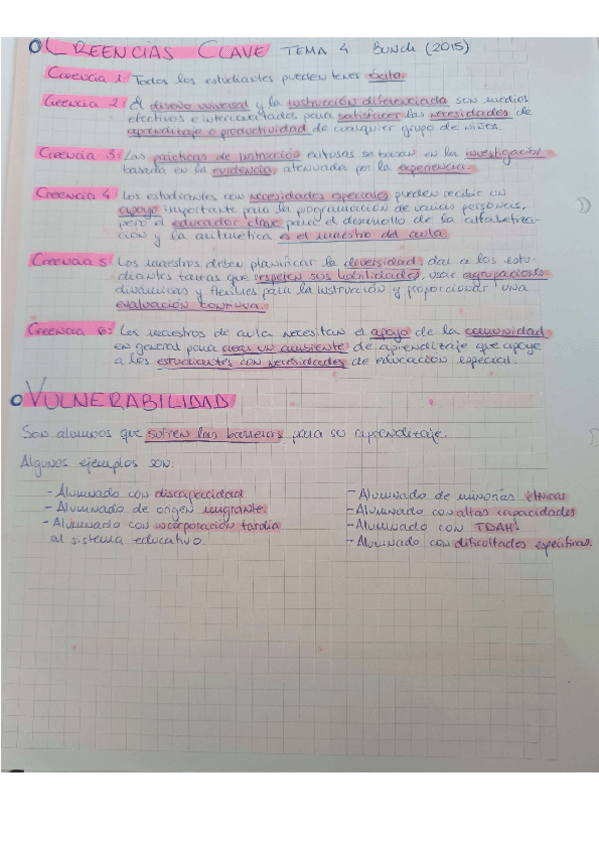 CREENCIAS CLAVE TEMA 4 Bunch (2015)
Creencia 1: Todos los estudiantes pueden tener éxito.
Creencia 2: El diseño universal y la instrucción diferenciada son medios
efectivos e interconectados para satisfacer las necesidades de
aprendizaje o productividad de cualquier grupo de niños.
Creencia 3: Las prácticas de instrucción exitosas se basan en la investigación
basada en la evidencia, atenuada por la experiencia.
Creencia 4: Los estudiantes con necesidades especiales pueden recibir un
apoyo importante para la programación de varias personas,
pero el educador clave para el desarrollo de la alfabetiza-
ción y la aritmética es el maestro del aula.
Creencia 5: Los maestros deben planificar la diversidad, dar a los estu-
diantes tareas que respeten sus habilidades, usar agrupaciones
dinámicas y flexibles para la instrucción y proporcionar una
evaluación continua.
Creencia 6: Los maestros de aula necesitan el apoyo de la comunidad
en general para crear un ambiente de aprendizaje que apoye
a los estudiantes con necesidades de educación especial.
VULNERABILIDAD
Son alumnos que sufren las barreras para su aprendizaje.
Algunos ejemplos son:
- Alumnado con discapacidad
- Alumnado de origen migrante
- Alumnado con incorporación tardía
al sistema educativo.
- Alumnado de minorías étnicas
- Alumnado con altas capacidades
- Alumnado con TDAH
- Alumnado con dificultades específicas.